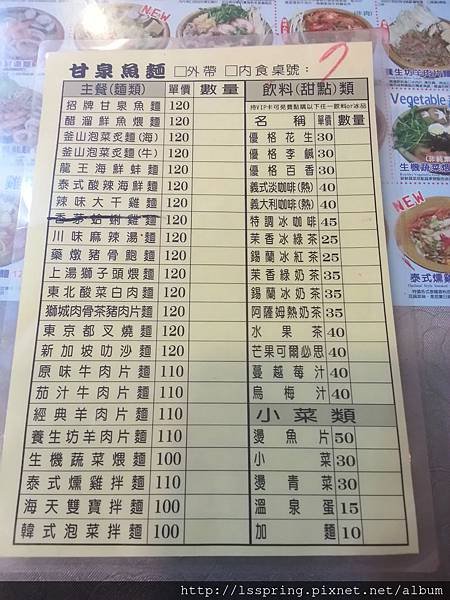 甘泉魚麵 □外帶 □內食桌號：7
主餐(麵類) 單價 數量
招牌甘泉魚麵 120
醋溜鮮魚煨麵 120
釜山泡菜炙麵(海) 120
釜山泡菜炙麵(牛) 120
龍王海鮮蚌麵 120
泰式酸辣海鮮麵 120
辣味大干雞麵 120
香茅蛤蜊雞麵 120
川味麻辣湯麵 120
藥燉豬骨鮑麵 120
上湯獅子頭煨麵 120
東北酸菜白肉麵 120
獅城肉骨茶豬肉片麵 120
東京都叉燒麵 120
新加坡叻沙麵 120
原味牛肉片麵 110
茄汁牛肉片麵 110
經典羊肉片麵 110
養生坊羊肉片麵 110
生機蔬菜煨麵 100
泰式燻雞拌麵 110
海天雙寶拌麵 100
韓式泡菜拌麵 100
飲料(甜點)類
持VIP卡可免費點購以下任一飲料or冰品
名稱 單價 數量
優格花生 30
優格李鹹 30
優格百香 30
義式淡咖啡(熱) 40
義大利咖啡(熱) 40
特調冰咖啡 45
茉香冰綠茶 25
錫蘭冰紅茶 25
茉香綠奶茶 35
錫蘭冰奶茶 35
阿薩姆熱奶茶 35
水果茶 40
芒果可爾必思 40
蔓越莓汁 40
烏梅汁 40
小菜類
燙魚片 50
小菜 30
燙青菜 30
溫泉蛋 15
加麵 10
NEW
Vegetable
生機蔬菜煨
NEW
泰式燻雞
http://lsspring.pixnet.net/album